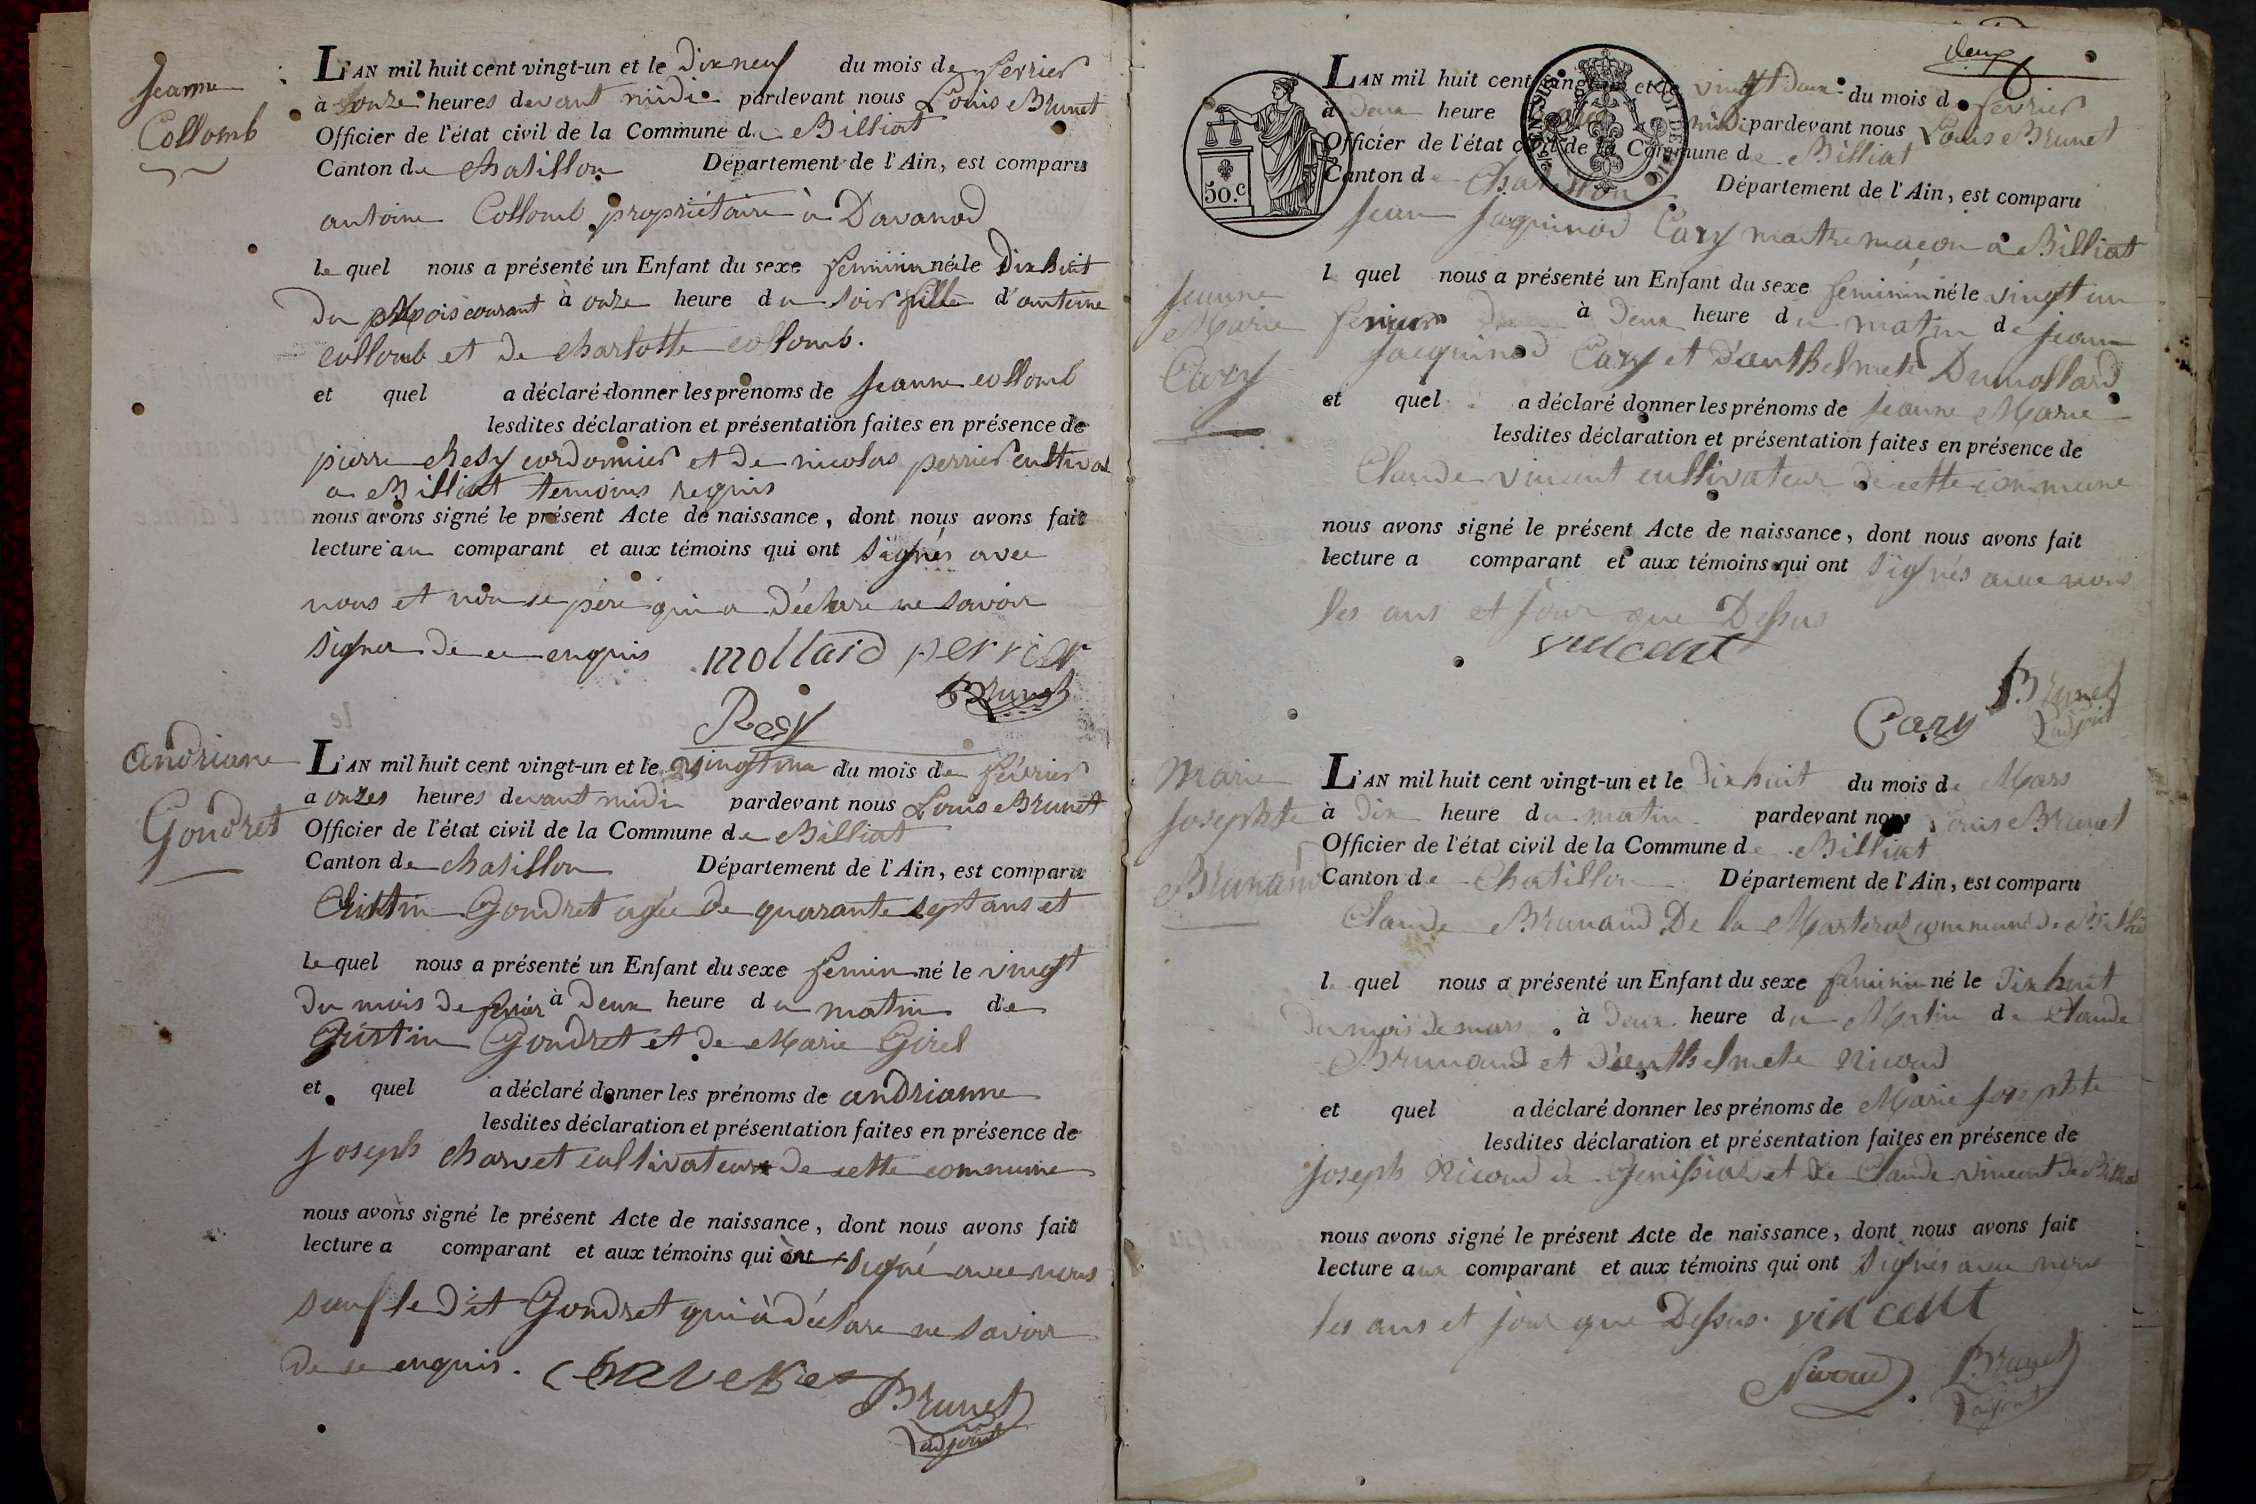 Jeanne
Collomb
L'AN mil huit cent vingt-un et le Dix neuf du mois de fevrier
à onze heures devant midi pardevant nous Louis Brunet
Officier de l'état civil de la Commune de Billiat
Canton de Chatillon Département de l'Ain, est comparu
antoine Collomb propriétaire à Davanod
le quel nous a présenté un Enfant du sexe feminin né le Dix huit
Du Mois courant à onze heure du soir fille d'antoine
collomb et de charlotte collomb.
et quel a déclaré donner les prénoms de Jeanne collomb
lesdites déclaration et présentation faites en présence de
pierre cordonnier et de nicolas perrier cultivat
a Billiat temoins requis
nous avons signé le présent Acte de naissance, dont nous avons fait
lecture au comparant et aux témoins qui ont signés avec
nous et non le père qui a Déclare ne savoir
signer de ce enquis mollard perrier
Brunet
Rey
andriane
Gondret
L'AN mil huit cent vingt-un et le vingt un du mois de février
a onzes heures devant midi pardevant nous Louis Brunet
Officier de l'état civil de la Commune de Billiat
Canton de chatillon Département de l'Ain, est comparu
Gondret agée de quarante sept ans et
le quel nous a présenté un Enfant du sexe femin né le vingt
du mois de fevrier à Deux heure du matin de
Gondret et de Marie Girel
et quel a déclaré donner les prénoms de andrianne
lesdites déclaration et présentation faites en présence de
Joseph charvet cultivateur de cette commune
nous avons signé le présent Acte de naissance, dont nous avons fait
lecture a comparant et aux témoins qui ont signé avec nous
sauf le dit Gondret qui à déclare ne savoir
De ce enquis.
Brunet
adjoint
deux
50.c
L'AN mil huit cent vingt-un et le vingt Deux du mois de fevrier
à Deux heure midi pardevant nous Louis Brunet
Officier de l'état civil de la Commune de Billiat
Canton de Chatillon Département de l'Ain, est comparu
Jean Jaquinod Cary maitre maçon à Billiat
Jeanne
Marie
Cary
l quel nous a présenté un Enfant du sexe feminin né le vingt un
fevrier à Deux heure du matin de jean
Jacquinod Cary et d'anthelmete Dumollard
et quel a déclaré donner les prénoms de jeanne Marie
lesdites déclaration et présentation faites en présence de
Claude vincent cultivateur de cette commune
nous avons signé le présent Acte de naissance, dont nous avons fait
lecture a comparant et aux témoins qui ont signés avec nous
les ans et jour que Dessus
vincent
Brunet
adjoint
Cary
Marie
Josephte
Brunand
L'AN mil huit cent vingt-un et le Dix huit du mois de Mars
à Dix heure du matin pardevant nous Louis Brunet
Officier de l'état civil de la Commune de Billiat
Canton de Chatillon Département de l'Ain, est comparu
Claude Brunand De la commune de Billiat
l quel nous a présenté un Enfant du sexe feminin né le Dix huit
du mois de mars à Deux heure du Matin de Claude
Brunand et d'anthelmete Nicoud
et quel a déclaré donner les prénoms de Marie Josephte
lesdites déclaration et présentation faites en présence de
Joseph Nicoud de Genissiat et de Claude vincent de Billiat
nous avons signé le présent Acte de naissance, dont nous avons fait
lecture aux comparant et aux témoins qui ont signés avec nous
les ans et jour que Dessus. vincent
Nicoud Brunet
adjoint